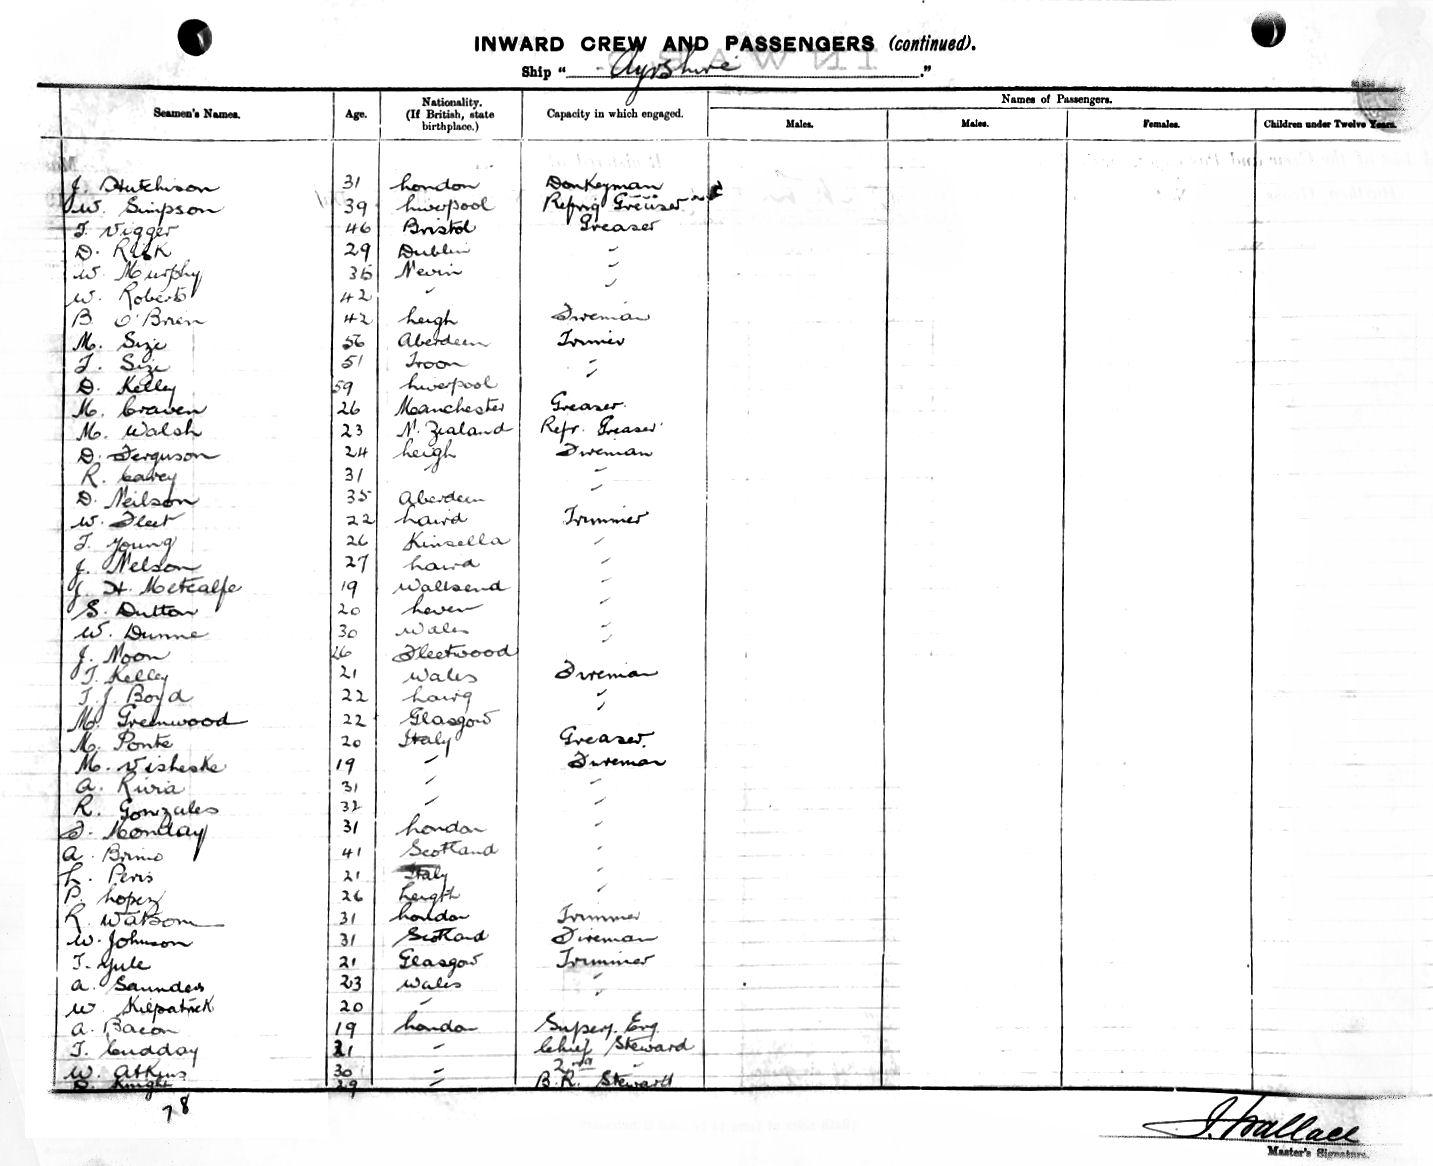 INWARD CREW AND PASSENGERS (continued).
Ship "Ayrshire."
Seamen's Names. Age. Nationality. (If British, state birthplace.) Capacity in which engaged. Names of Passengers.
Males. Males. Females. Children under Twelve Years.
J. Hutchison 31 London Donkeyman
W. Simpson 39 Liverpool Refrig Greaser
T. Vigger 46 Bristol Greaser
D. Rusk 29 Dublin "
W. Murphy 35 Nevin "
W. Roberts 42 " "
B. O'Brien 42 Leigh Fireman
M. Size 56 Aberdeen Trimmer
T. Size 51 Troon "
D. Kelly 59 Liverpool "
M. Craven 26 Manchester Greaser.
M. Walsh 23 N. Zealand Refr. Greaser
D. Ferguson 24 Leigh Fireman
R. Carey 31 " "
D. Neilson 35 Aberdeen "
W. Fleet 22 Laird Trimmer
T. Young 26 Kinsella "
J. Nelson 27 Laird "
J. H. Metcalfe 19 Wallsend "
S. Dutton 20 Leven "
W. Dunne 30 Wales "
J. Moon 26 Fleetwood "
T. Kelley 21 Wales Fireman
T. J. Boyd 22 Lairg "
M. Greenwood 22 Glasgow "
M. Ponte 20 Italy Greaser.
M. Visheske 19 " Fireman
A. Rivia 31 " "
R. Gonzales 32 " "
F. Monday 31 London "
A. Brimo 41 Scotland "
L. Peris 21 Italy "
P. Lopez 26 Leigth "
R. Watsom 31 London Trimmer
W. Johnson 31 Scotland Fireman
T. Yule 21 Glasgow Trimmer
A. Saunders 23 Wales "
W. Kilpatrick 20 " "
A. Bacon 19 London Supery. Eng.
T. Cudday 21 " Chief Steward
W. Atkins 30 " 2nd "
D. Knight 29 " B.R. Steward
78
J. Wallace
Master's Signature.